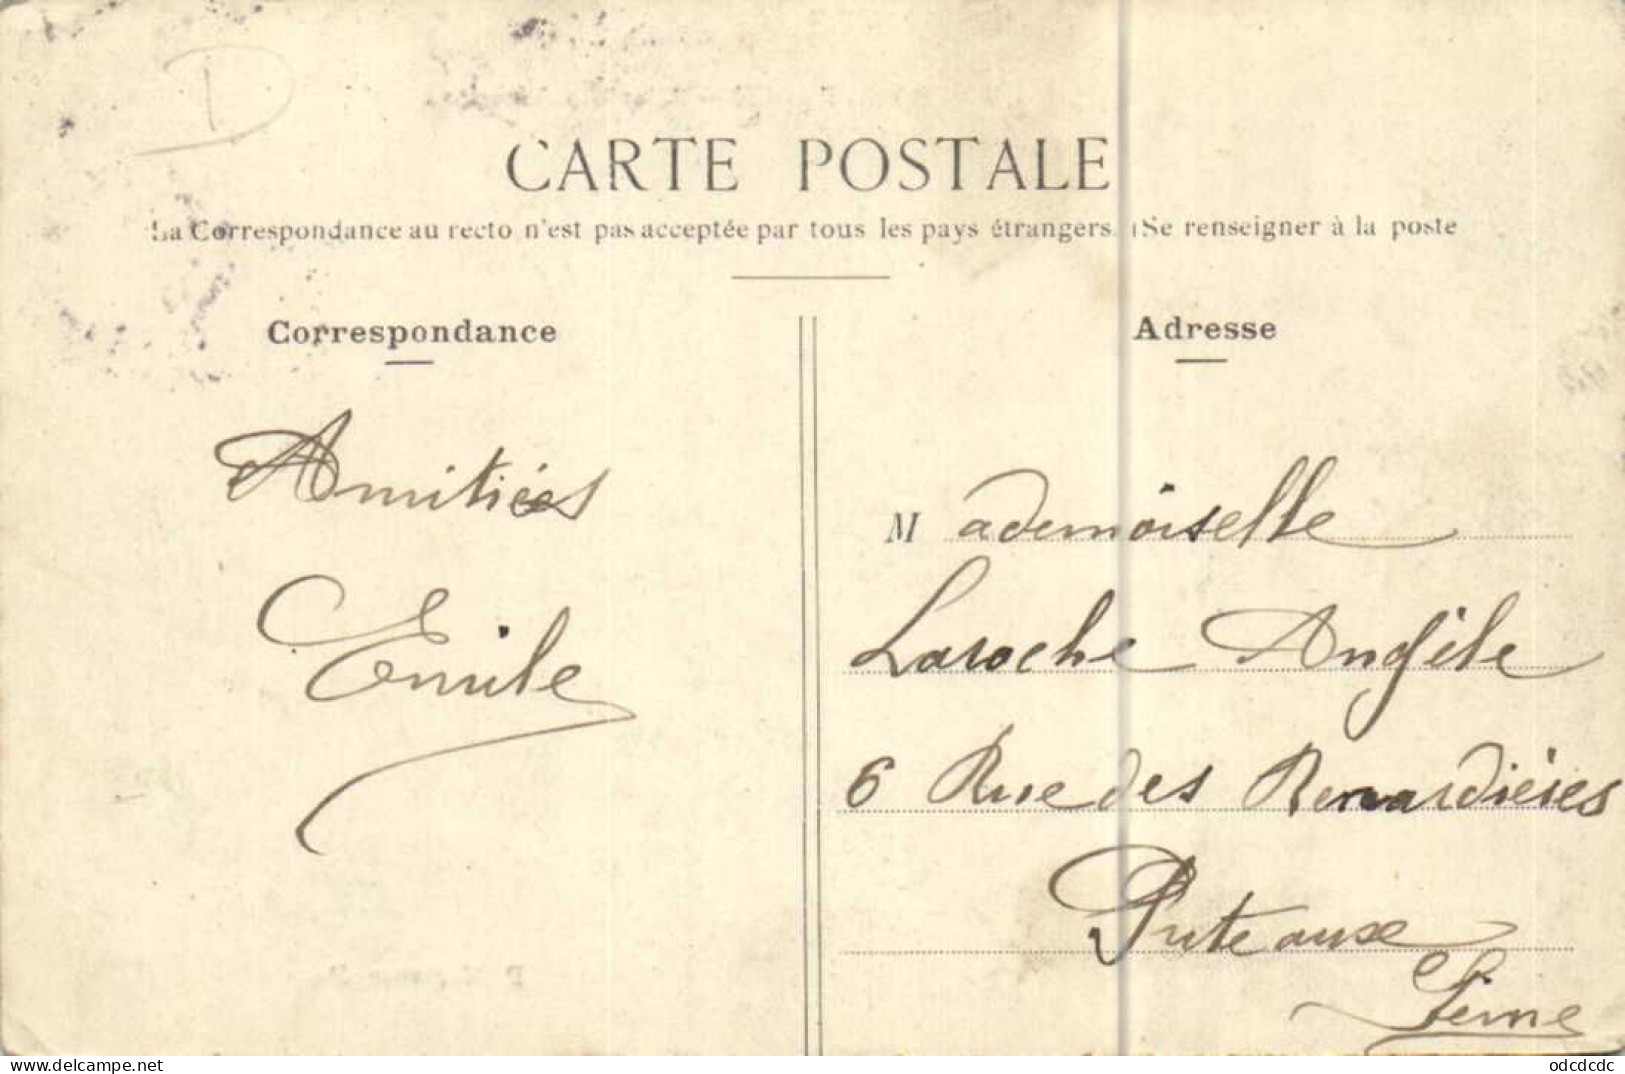 D
CARTE POSTALE
La Correspondance au recto n'est pas acceptée par tous les pays étrangers. (Se renseigner à la poste
Correspondance
Amitiés
Emile
Adresse
Mademoiselle
Laroche Angèle
6 Rue des Renardières
Puteaux
Seine
odcdcdc